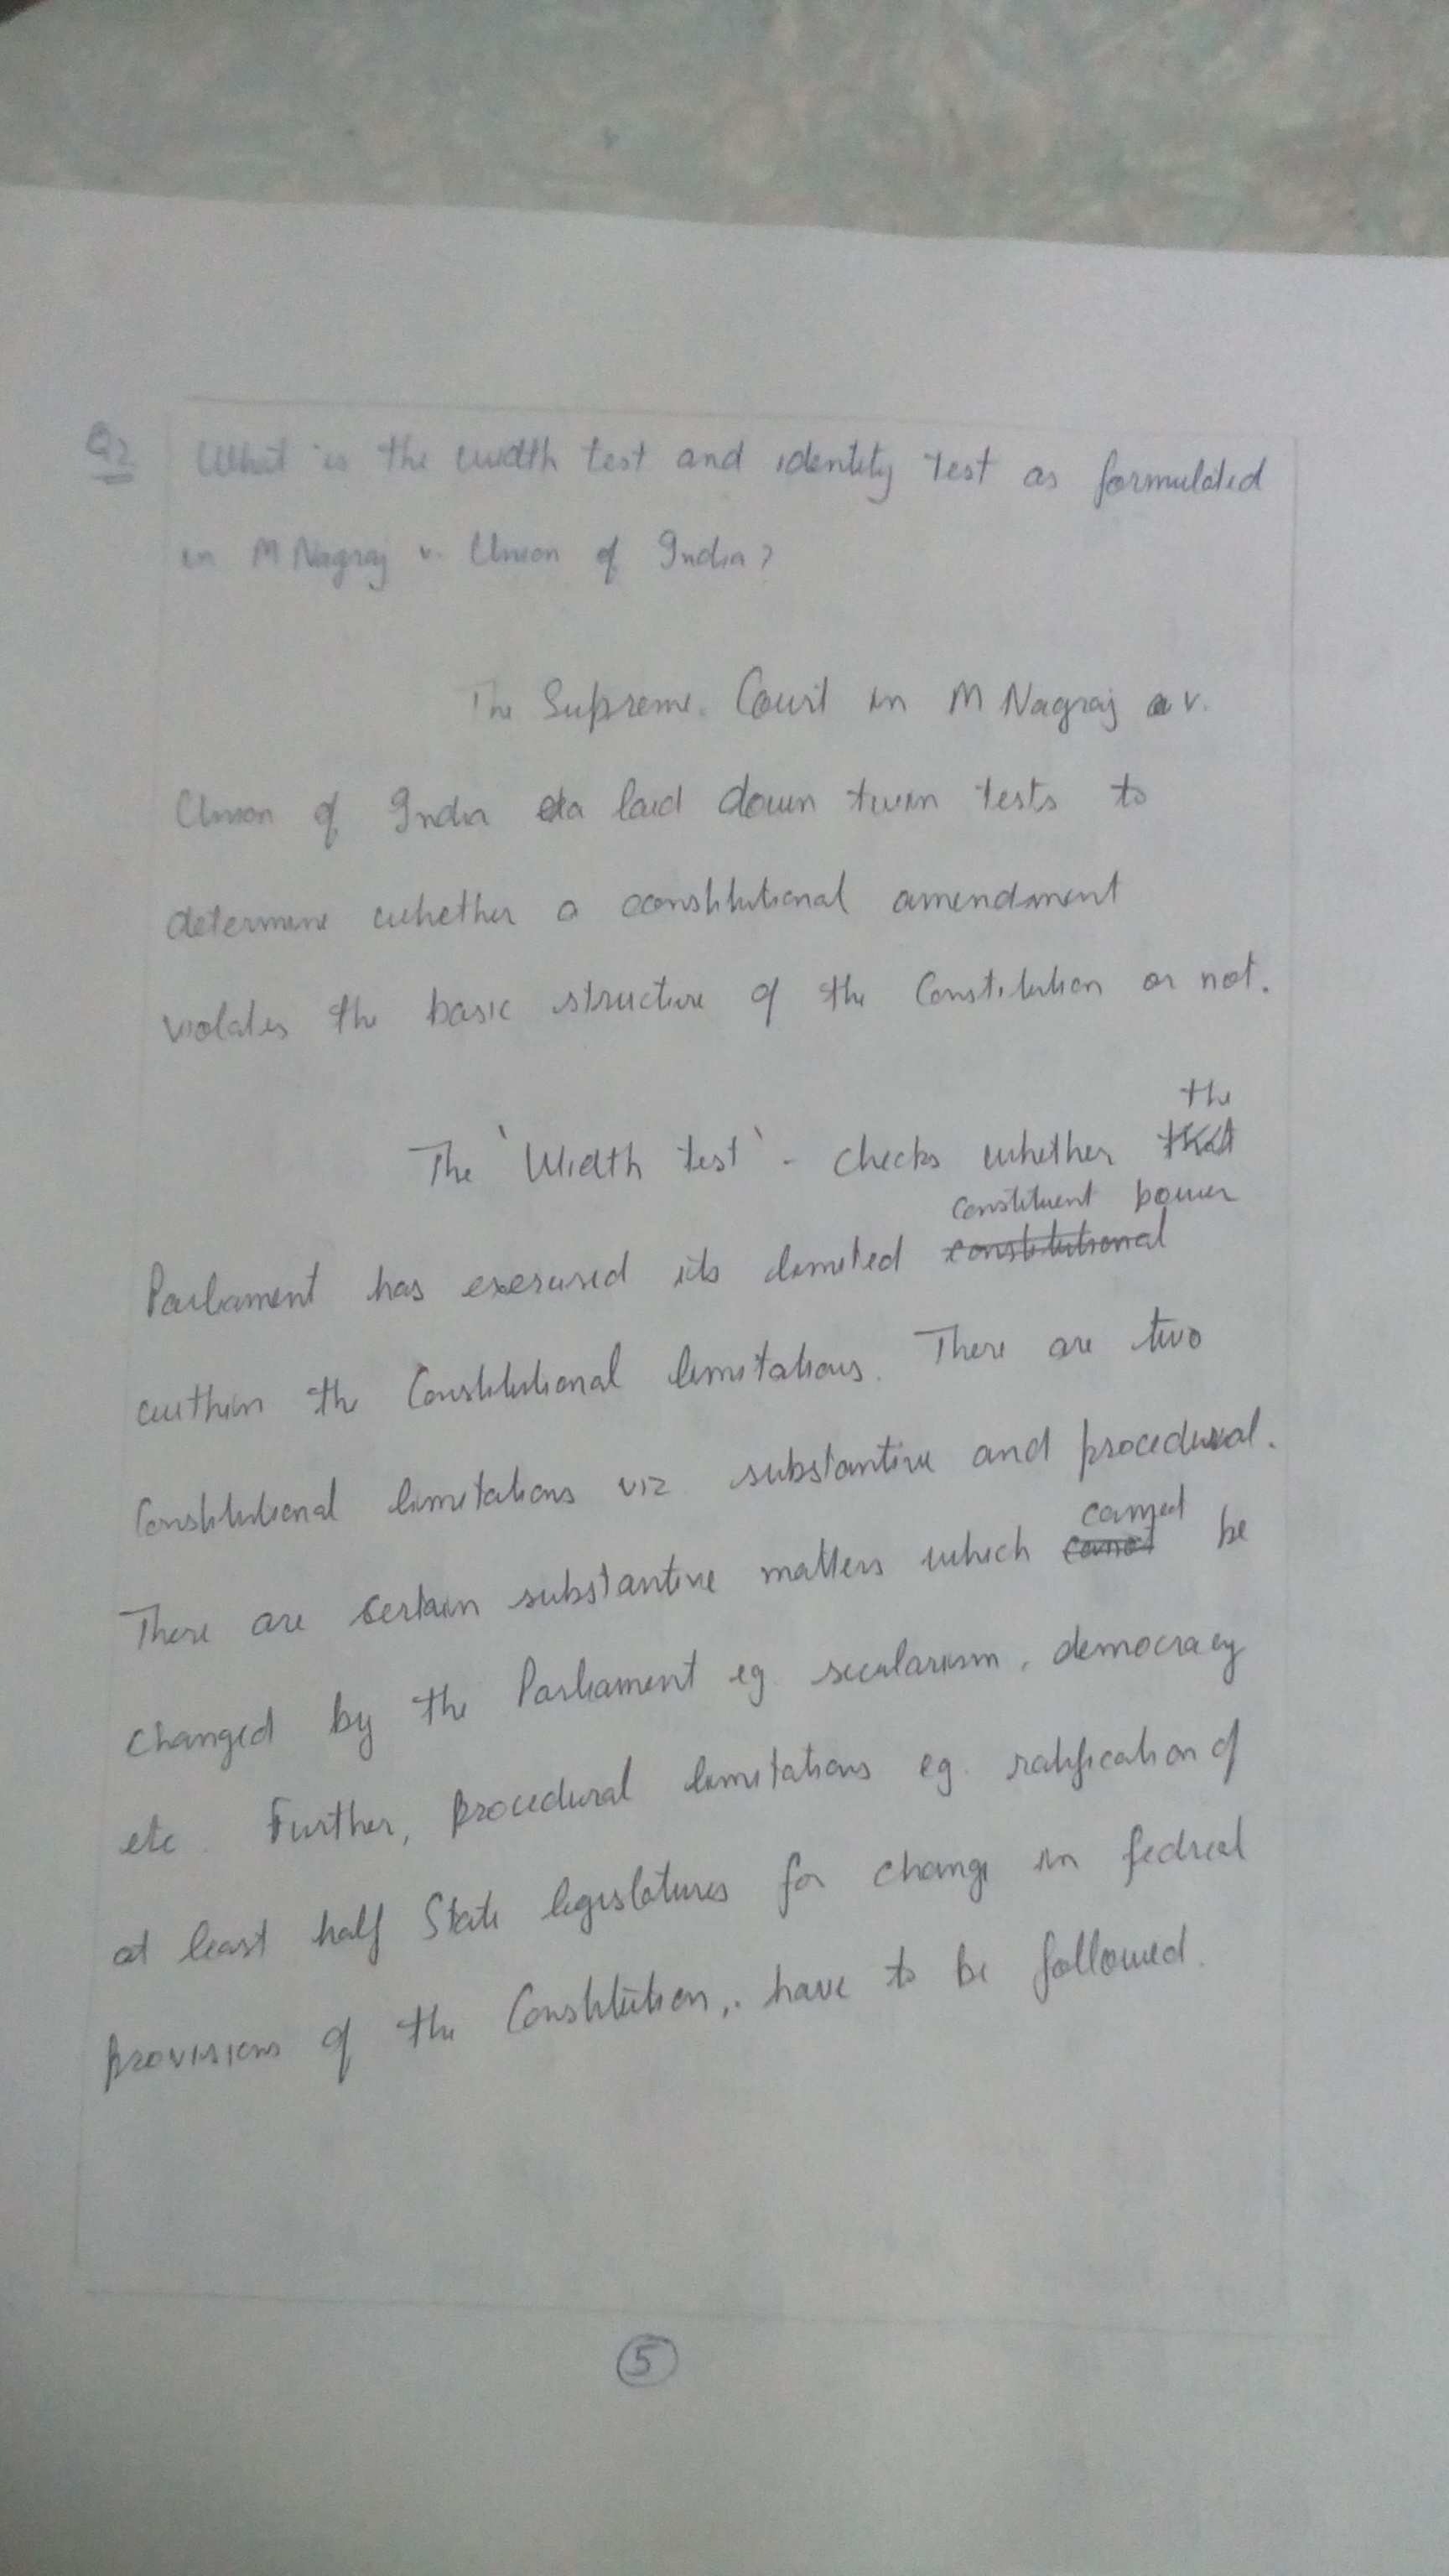 Q2 What is the width test and identity test as formulated
in M Nagraj v. Union of India?
The Supreme Court in M Nagraj v.
Union of India laid down twin tests to
determine whether a constitutional amendment
violates the basic structure of the Constitution or not.
the
The 'Width test' - checks whether that
constituent power
Parliament has exercised its limited constitutional
within the Constitutional limitations. There are two
Constitutional limitations viz. substantive and procedural.
cannot
There are certain substantive matters which cannot be
changed by the Parliament eg. secularism, democracy
etc. Further, procedural limitations eg. ratification of
at least half State legislatures for change in fedreal
provisions of the Constitution, have to be followed.
5